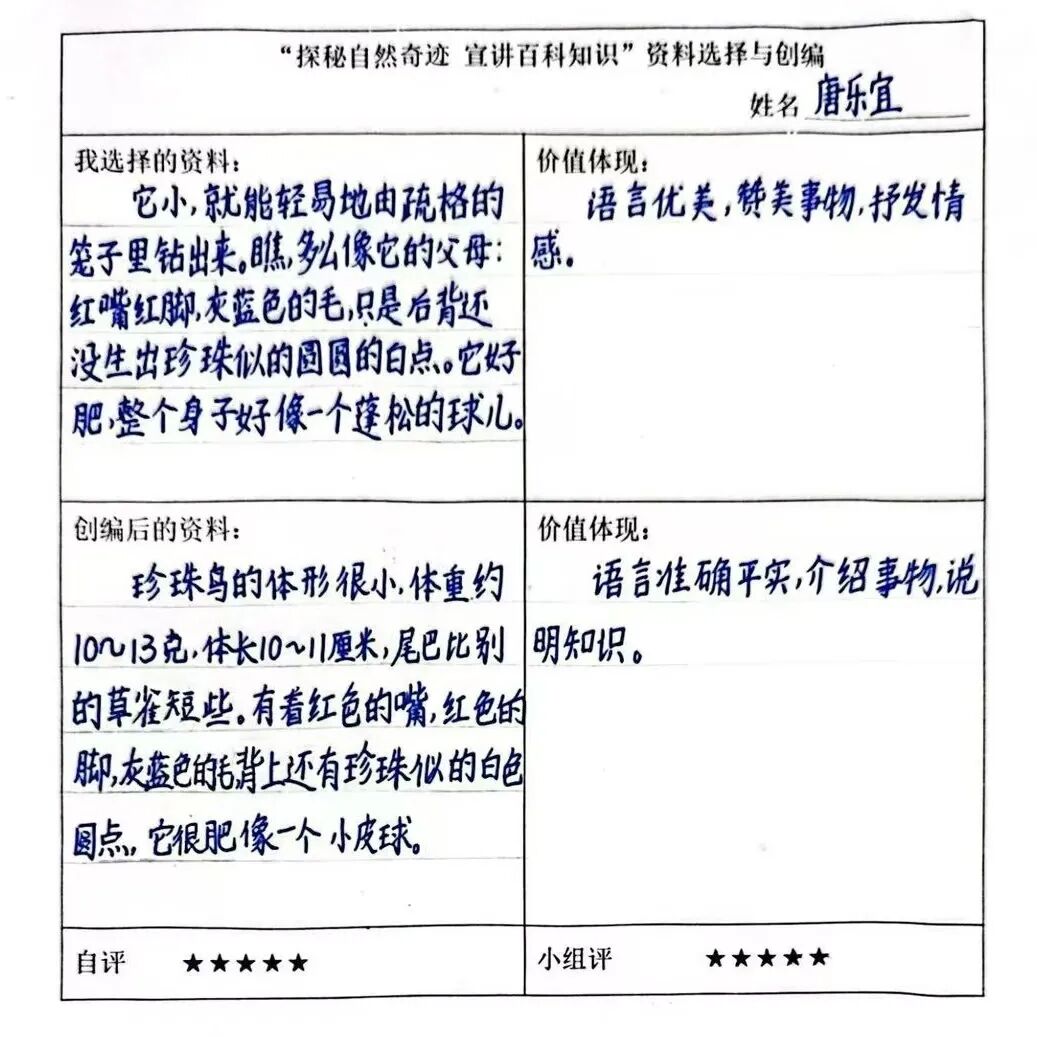 “探秘自然奇迹 宣讲百科知识”资料选择与创编
姓名 唐乐宜
我选择的资料：
它小，就能轻易地由疏格的
笼子里钻出来。瞧，多么像它的父母：
红嘴红脚，灰蓝色的毛，只是后背还
没生出珍珠似的圆圆的白点。它好
肥，整个身子好像一个蓬松的球儿。
价值体现：
语言优美，赞美事物，抒发情
感。
创编后的资料：
珍珠鸟的体形很小，体重约
10～13克，体长10～11厘米，尾巴比别
的草雀短些。有着红色的嘴，红色的
脚，灰蓝色的毛，背上还有珍珠似的白色
圆点。它很肥像一个小皮球。
价值体现：
语言准确平实，介绍事物，说
明知识。
自评 ★★★★★
小组评 ★★★★★